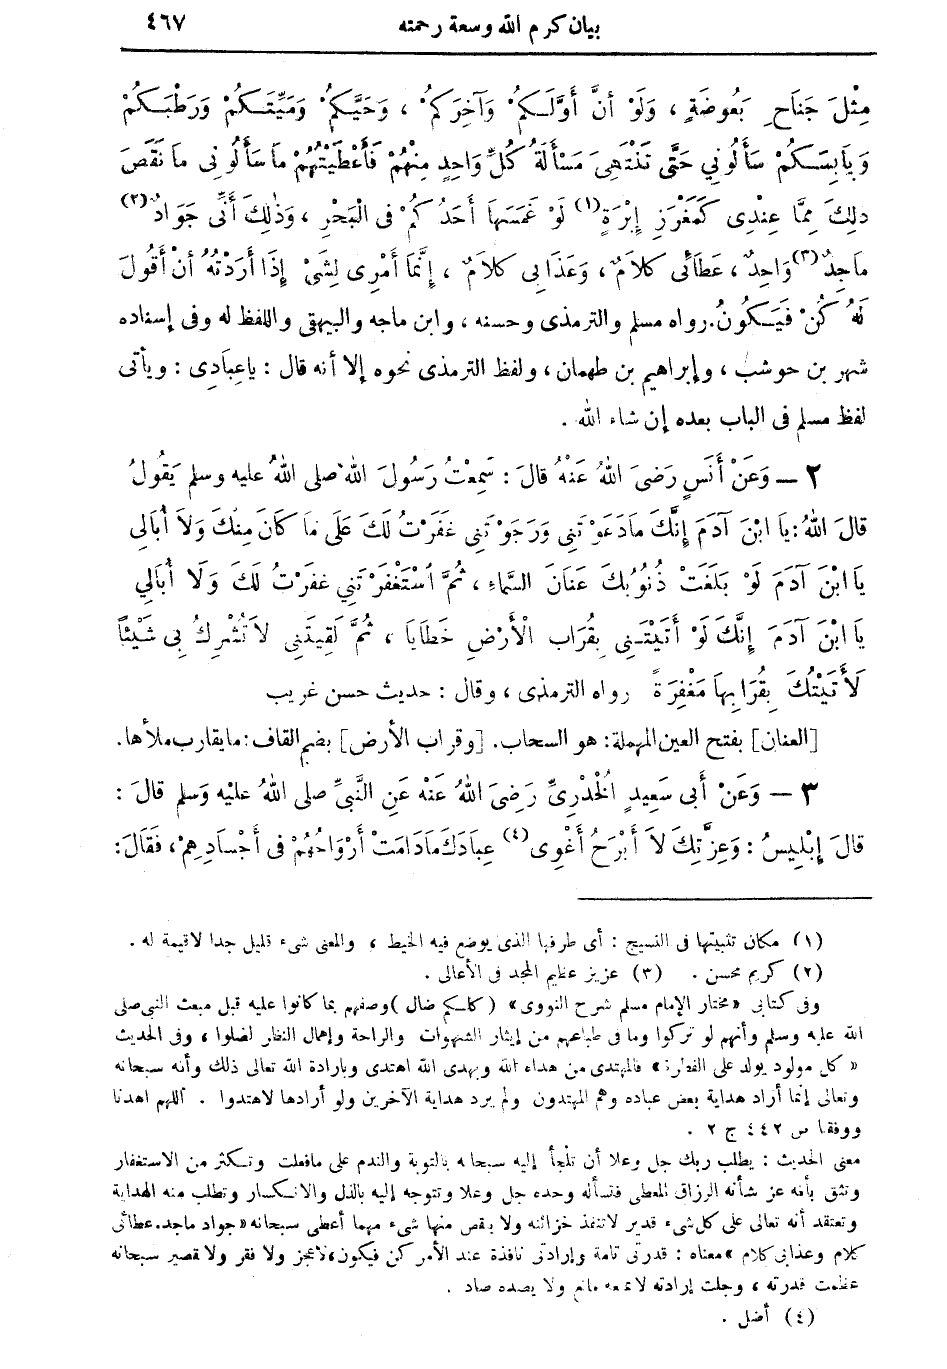 بيان كرم الله وسعة رحمته ٤٦٧
مِثْلَ جَنَاحِ بَعُوضَةٍ ، وَلَوْ أنَّ أَوَّلَـكُمْ وَآخِرَكُمْ ، وَحَيَّكُمْ وَمَيِّتَـكُمْ وَرَطْبَـكُمْ
وَيَابِسَـكُمْ سَأَلُونِي حَتَّى تَنْتَهِىَ مَسْأَلَةُ كُلِّ وَاحِدٍ مِنْهُمْ فَأَعْطَيْتُهُمْ مَا سَأَلُونِى مَا نَقَصَ
ذلِكَ مِمَّا عِنْدِى كَمَغْرَزِ إِبْرَةٍ (١) لَوْ غَمَسَهَا أَحَدُكُمْ فى الْبَحْرِ ، وَذٰلِكَ أَنِّى جَوَادٌ (٢)
مَاجِدٌ (٣) وَاحِدٌ ، عَطَائى كَلاَمٌ ، وَعَذَابِى كَلاَمٌ ، إِنَّمَا أَمْرِى لِشَىْءٍ إِذَا أَرَدْتُهُ أنْ أَقُولَ
لَهُ كُنْ فَيَـكُونُ. رواه مسلم والترمذى وحسنه ، وابن ماجه والبيهقى واللفظ له وفى إسناده
شهر بن حوشب ، وإبراهيم بن طهمان ، ولفظ الترمذى نحوه إلا أنه قال : ياعِبَادِى : ويأتى
لفظ مسلم فى الباب بعده إن شاء الله .
٢ — وَعَنْ أَنَسٍ رَضِىَ اللهُ عَنْهُ قَالَ : سَمِعْتُ رَسُولَ اللهِ صلى اللهُ عليه وسلم يَقُولُ
قالَ اللهُ : يَا ابْنَ آدَمَ إِنَّكَ مَا دَعَوْتَنِى وَرَجَوْتَنِى غَفَرْتُ لَكَ عَلَى مَا كَانَ مِنْكَ وَلاَ أُبَالِى
يَا ابْنَ آدَمَ لَوْ بَلَغَتْ ذُنُوبُكَ عَنَانَ السَّمَاءِ ، ثُمَّ اسْتَغْفَرْتَنِي غَفَرْتُ لَكَ وَلَا أُبَالِي
يَا ابْنَ آدَمَ إِنَّكَ لَوْ أَتَيْتَـنِى بِقُرَابِ الْأَرْضِ خَطَايَا ، ثُمَّ لَقِيتَنِى لاَ تُشْرِكُ بِى شَيْئًا
لَأَتَيْتُكَ بِقُرَابِهَا مَغْفِرَةً رواه الترمذى ، وقال : حديث حسن غريب
[العنان] بفتح العين المهملة : هو السحاب. [وقراب الأرض] بضم القاف : مايقارب ملأها.
٣ — وَعَنْ أَبى سَعِيدٍ الْخُدْرِىِّ رَضِىَ اللهُ عَنْهُ عَنِ النَّبِىِّ صلى اللهُ عليْه وَسلم قالَ :
قالَ إِبْلِيسُ : وَعِزَّتِكَ لاَ أَبْرَحُ أُغْوِى (٤) عِبَادَكَ مَادَامَتْ أَرْوَاحُهُمْ فى أَجْسَادِهِمْ ، فَقَالَ:
(١) مكان تثبيتها فى النسيج : أى طرفها الذى يوضع فيه الخيط ، والمعنى شىء قليل جدا لاقيمة له .
(٢) كريم محسن . (٣) عزيز عظيم المجد فى الأعالى .
وفى كتابى «مختار الإمام مسلم شرح النووى» (كلكم ضال) وصفهم بما كانوا عليه قبل مبعث النبى صلى
الله عليه وسلم وأنهم لو تركوا وما فى طباعهم من إيثار الشهوات والراحة وإهمال النظر لضلوا ، وفى الحديث
« كل مولود يولد على الفطرة» فالمهتدى من هداه الله وبهدى الله اهتدى وبإرادة الله تعالى ذلك وأنه سبحانه
وتعالى إنما أراد هداية بعض عباده وهم المهتدون ولم يرد هداية الآخرين ولو أرادها لاهتدوا . اللهم اهدنا
ووفقنا ص ٤٤٢ ج ٢ .
معنى الحديث : يطلب ربك جل وعلا أن تلجأ إليه سبحانه بالتوبة والندم على مافعلت وتـكثر من الاستغفار
وتثق بأنه عز شأنه الرزاق المعطى فتسأله وحده جل وعلا وتتوجه إليه بالذل والانـكسار وتطلب منه الهداية
وتعتقد أنه تعالى على كل شىء قدير لاتنفذ خزائنه ولا ينقص منها شىء مهما أعطى سبحانه «جواد ماجد. عطائى
كلام وعذابى كلام » معناه : قدرتى تامة وإرادتى نافذة عند الأمر كن فيكون، لاعجز ولا فقر ولا قصير سبحانه
عظمت قدرته ، وجلت إرادته لا يمنعه مانع ولا يصده صاد .
(٤) أضل .